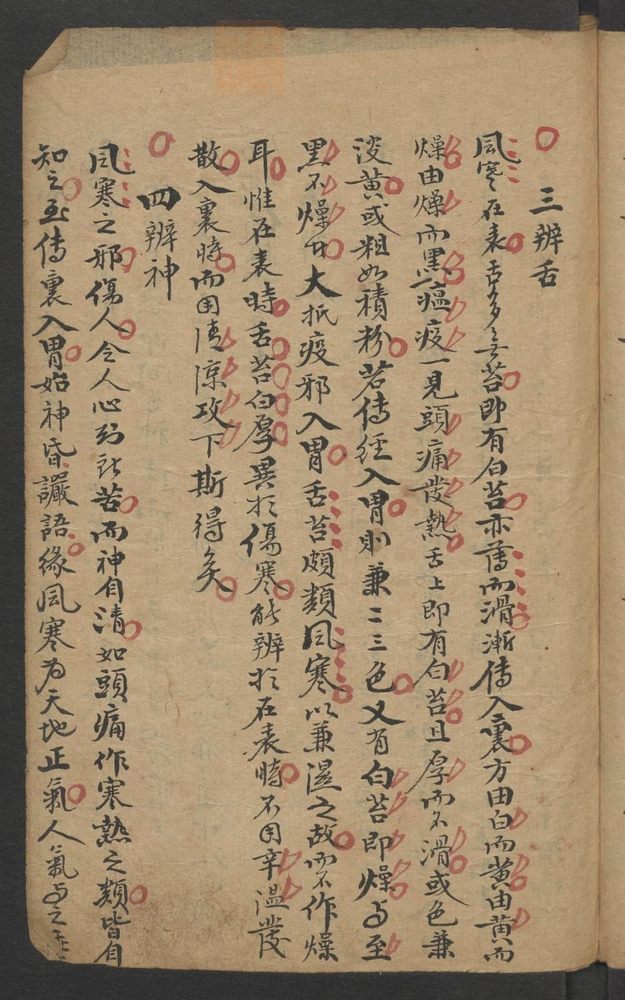 三辨舌
風寒在表舌多無苔即有白苔亦薄而滑漸傳入裏方由白而黃由黃而
燥由燥而黑瘟疫一見頭痛發熱舌上即有白苔且厚而不滑或色兼
淡黃或粗如積粉若傳經入胃則兼二三色又有白苔即燥与至
黑不燥大抵疫邪入胃舌苔頗類風寒以兼濕之故而不作燥
耳惟在表時舌苔白厚異於傷寒能辨於在表時不用辛溫發
散入裏時而用清凉攻下斯得矣
四辨神
風寒之邪傷人令人心知所苦而神自清如頭痛作寒熱之類皆自
知之至傳裏入胃始神昏讝語緣風寒為天地正氣人氣与之